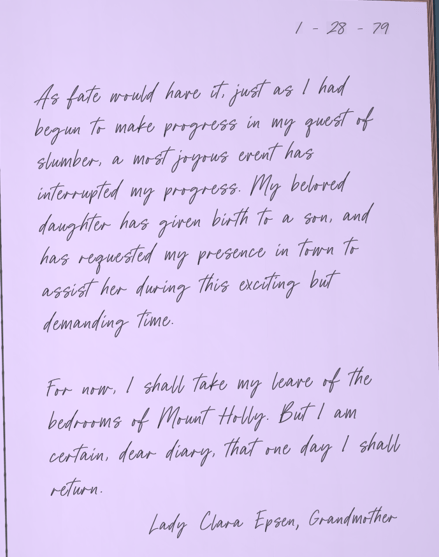 1 - 28 - 79
As fate would have it, just as I had
begun to make progress in my quest of
slumber, a most joyous event has
interrupted my progress. My beloved
daughter has given birth to a son, and
has requested my presence in town to
assist her during this exciting but
demanding time.
For now, I shall take my leave of the
bedrooms of Mount Holly. But I am
certain, dear diary, that one day I shall
return.
Lady Clara Epsen, Grandmother